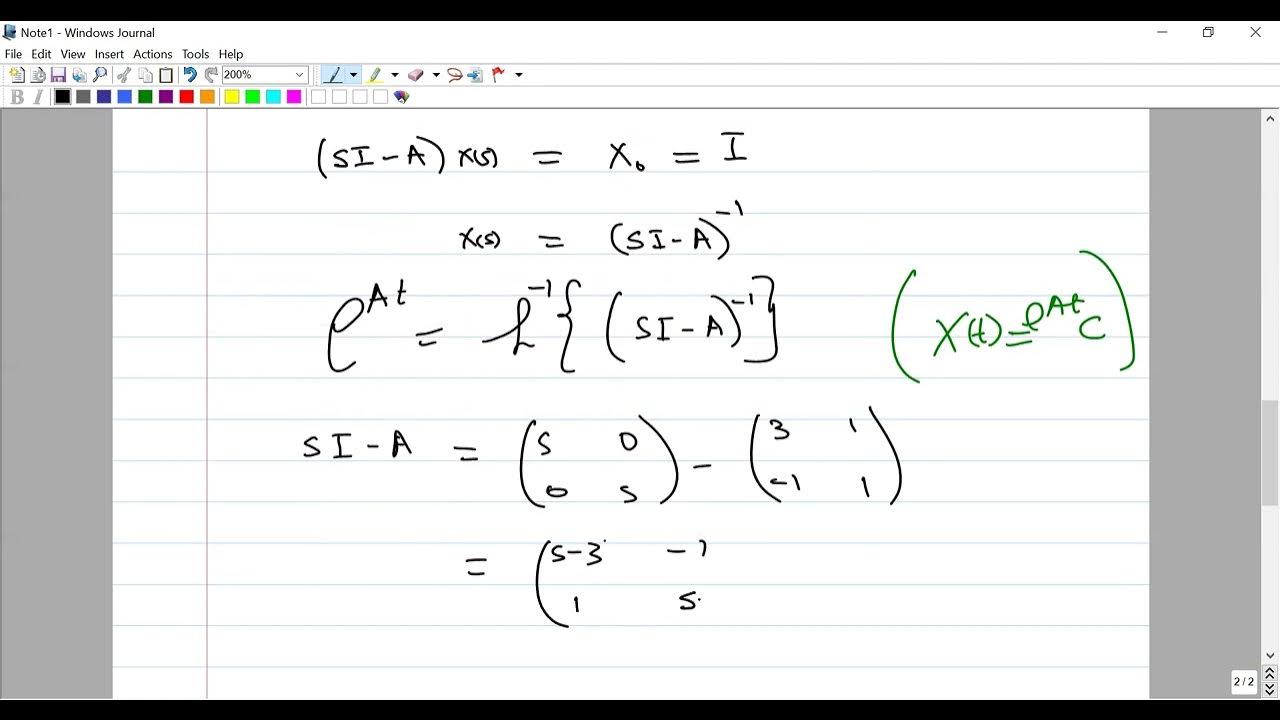 Note1 - Windows Journal
File Edit View Insert Actions Tools Help
200%
B I
(SI-A) X(s) = X₀ = I
X(s) = (SI-A)⁻¹
e^At = L⁻¹{(SI-A)⁻¹}
(X(t)=e^At C)
SI-A = (S 0
0 S) - (3 1
-1 1)
= (S-3 -1
1 S
2 / 2